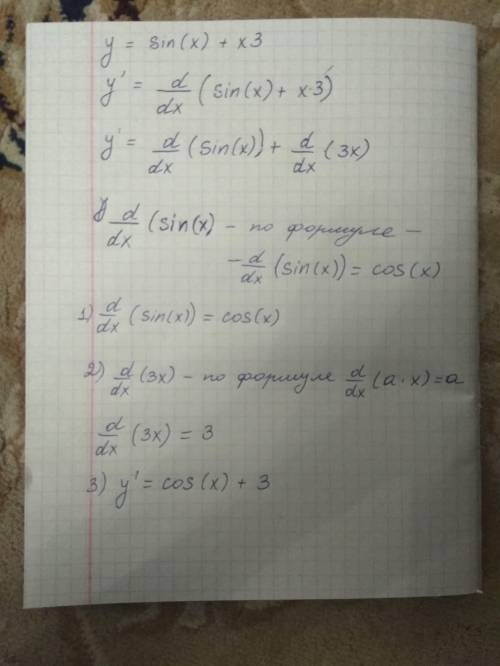 y = sin(x) + x3
y' = d/dx (sin(x) + x·3)
y' = d/dx (sin(x)) + d/dx (3x)
d/dx (sin(x) - по формуле -
- d/dx (sin(x)) = cos(x)
1) d/dx (sin(x)) = cos(x)
2) d/dx (3x) - по формуле d/dx (a·x) = a
d/dx (3x) = 3
3) y' = cos(x) + 3